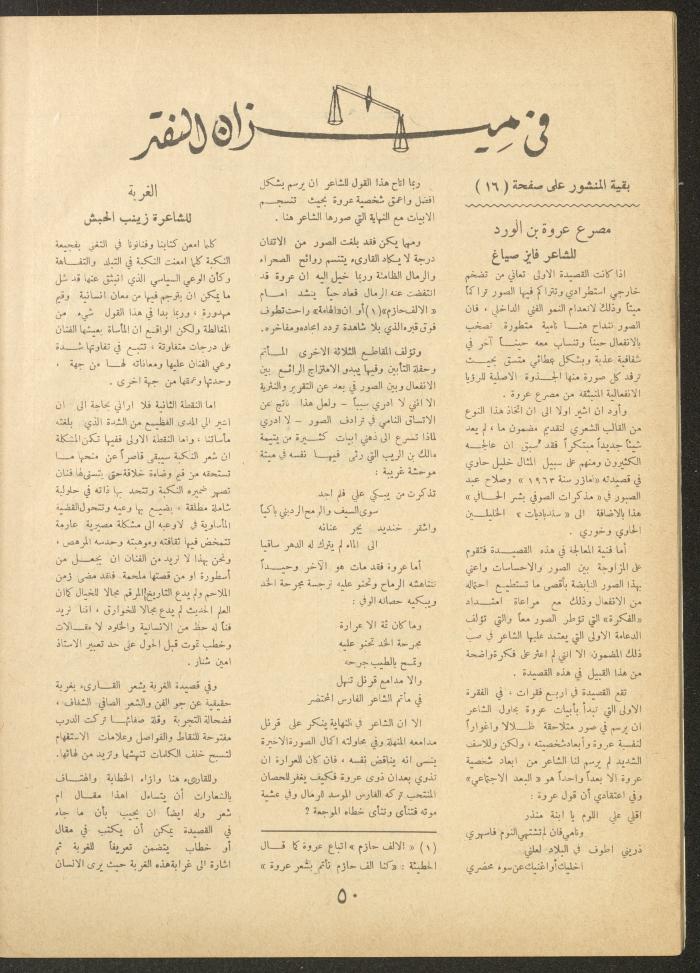 في ميزان النقد
بقية المنشور على صفحة ( ١٦ )
مصرع عروة بن الورد
للشاعر فايز صياغ
اذا كانت القصيدة الاولى تعاني من تضخم
خارجي استطرادي وتتراكم فيها الصور تراكماً
ميتاً وذلك لانعدام النمو الفني الداخلي ، فان
الصور تنداح هنا نامية متطورة تصخب
بالانفعال حيناً وتنساب معه حيناً آخر في
شفافية عذبة وبشكل عطائي متسق بحيث
ترفد كل صورة منها الجذوة الاصلية للرؤيا
الانفعالية المنبثقة من مصرع عروة .
وأود ان اشير اولا الى ان اتخاذ هذا النوع
من القالب الشعري لتقديم مضمون ما ، لم يعد
شيئاً جديداً مبتكراً فقد سبق ان عالجه
الكثيرون ومنهم على سبيل المثال خليل حاوي
في قصيدته «لعازر سنة ١٩٦٣» وصلاح عبد
الصبور في « مذكرات الصوفي بشر الحافي »
هذا بالاضافة الى «سندباديات» الخليلين
الحاوي وخوري .
أما فنية المعالجة في هذه القصيدة فتقوم
على المزاوجة بين الصور والاحساسات واعني
بهذا الصور النابضة بأقصى ما تستطيع احتماله
من الانفعال وذلك مع مراعاة امتداد
«الفكرة» التي تؤطر الصور معاً والتي تؤلف
الدعامة الاولى التي يعتمد عليها الشاعر في صب
ذلك المضمون الا انني لم اعثر على فكرة واضحة
من هذا القبيل في هذه القصيدة .
تقع القصيدة في اربع فقرات ، في الفقرة
الاولى التي تبدأ بأبيات عروة يحاول الشاعر
ان يرسم في صور متلاحقة ظلالا واغواراً
لنفسية عروة وأبعاد شخصيته ، ولكن وللاسف
الشديد لم يرسم لنا الشاعر من ابعاد شخصية
عروة الا بعداً واحداً هو « البعد الاجتماعي»
وفي اعتقادي أن قول عروة :
اقلي علي اللوم يا ابنة منذر
ونامي فان لم تشتهي النوم فاسهري
ذريني اطوف في البلاد لعلني
اخليك أو اغنيك عن سوء محضري
ربما اتاح هذا القول للشاعر ان يرسم بشكل
افضل واعمق شخصية عروة بحيث تنسجم
الابيات مع النهاية التي صورها الشاعر هنا .
ومهما يكن فقد بلغت الصور من الاتقان
درجة لا يكاد القارىء يتنسم روائح الصحراء
والرمال الظامئة وربما خيل اليه ان عروة قد
انتفضت عنه الرمال فعاد حياً ينشد امام
«الالف حازم»(١) أو ان «الهامة» راحت تطوف
فوق قبره الذي بلا شاهدة تردد امجاده ومفاخره .
وتؤلف المقاطع الثلاثة الاخرى المأتم
وحفلة التأبين وفيها يبدو الامتزاج الرائع بين
الانفعال وبين الصور في بعد عن التقرير والنثرية
الا انني لا ادري سبباً – ولعل هذا ناتج عن
الاتساق النامي في ترادف الصور – لا ادري
لماذا تسرع الى ذهني ابيات كثيرة من يتيمة
مالك بن الريب التي رثى فيها نفسه في ميتة
موحشة غريبة :
تذكرت من يبكي علي فلم اجد
سوى السيف والرمح الرديني باكياً
واشقر خنديد يجر عنانه
الى الماء لم يترك له الدهر ساقيا
أما عروة فقد مات هو الآخر وحيداً
تتناهشه الرماح وتحنو عليه نرجسة مجرحة الخد
ويبكيه حصانه الوفي :
وما كان ثمة الا عرارة
مجرحة الخد تحنو عليه
وتمسح بالطيب جرحه
والا مدامع قرنل تنهل
في مأتم الشاعر الفارس المحتضر
الا ان الشاعر في النهاية ينكر على قرنل
مدامعه المنهلة وفي محاولته اكمال الصورة الاخيرة
ينسى انه يناقض نفسه ، فان كان للعرارة ان
تذوي بعد ان ذوى عروة فكيف يغفر للحصان
المنتحب تركه الفارس الموسد الرمال وفي عشية
موته فتنأى وتنأى خطاه الموجعة ؟
(١) «الالف حازم » اتباع عروة كما قال
الحطيئة : «كنا الف حازم نأتم بشعر عروة »
الغربة
للشاعرة زينب الحبش
كلما امعن كتابنا وفنانونا في التغني بفجيعة
النكبة كلما امعنت النكبة في التبلد والتفاهة
وكأن الوعي السياسي الذي انبثق عنها قد شل
ما يمكن ان يترجم فيها من معان انسانية وقيم
مهدورة ، وربما بدا في هذا القول شيء من
المغالطة ولكن الواقع ان المأساة يعيشها الفنان
على درجات متفاوتة ، تتبع في تفاوتها شدة
وعي الفنان عليها ومعاناته لها من جهة ،
وحدتها وعمقها من جهة اخرى .
اما النقطة الثانية فلا اراني بحاجة الى ان
اشير الى المدى الفظيع من الشدة الذي بلغته
مأساتنا ، واما النقطة الاولى ففيها تكمن المشكلة
ان شعر النكبة سيبقى قاصراً عن منحها ما
تستحقه من قيم وضاءة خلاقة حتى يتسنى لها فنان
تصهر ضميره النكبة وتتحد بها ذاته في حلولية
شاملة مطلقة ، يضيع بها وعيه وتتحول القضية
المأساوية في لاوعيه الى مشكلة مصيرية عارمة
تتمخض فيها ثقافته وموهبته وحدسه المرهص ،
ونحن بهذا لا نريد من الفنان ان يجعل من
أسطورة او من قصتها ملحمة فقد مضى زمن
الملاحم ولم يدع التاريخ المرقم مجالا للخيال كما ان
العلم الحديث لم يدع مجالا للخوارق ، اننا نريد
فناً له حظ من الانسانية والخلود لا مقالات
وخطب تموت قبل الحول على حد تعبير الاستاذ
امين شنار .
وفي قصيدة الغربة يشعر القارىء بغربة
حقيقية عن جو الفن والشعر الصافي الشفاف ،
فضحالة التجربة وقلة صفائها تركت الدرب
مفتوحة للنقاط والفواصل وعلامات الاستفهام
لتسبح خلف الكلمات تنهشها وتزيد من لهاثها .
وللقارىء هنا وازاء الخطابة والهتاف
بالشعارات أن يتساءل اهذا مقال ام
شعر وله ايضاً ان يجيب بأن ما جاء
في القصيدة يمكن أن يكتب في مقال
أو خطاب يتضمن تعريفاً للغربة ثم
اشارة الى غرابة هذه الغربة حيث يرى الانسان
٥٠